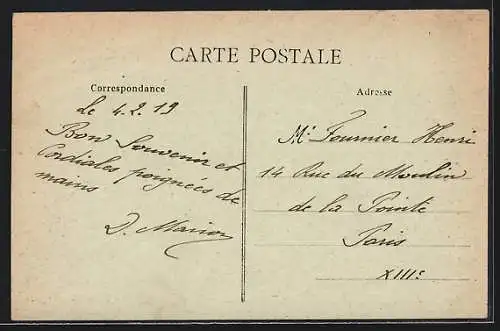 CARTE POSTALE
Correspondance
Le 4.2.19
Bon Souvenir et
Cordiales poignées de
mains
D. Marion
Adresse
Mr Fournier Henri
14 Rue du Moulin
de la Pointe
Paris
XIIIe